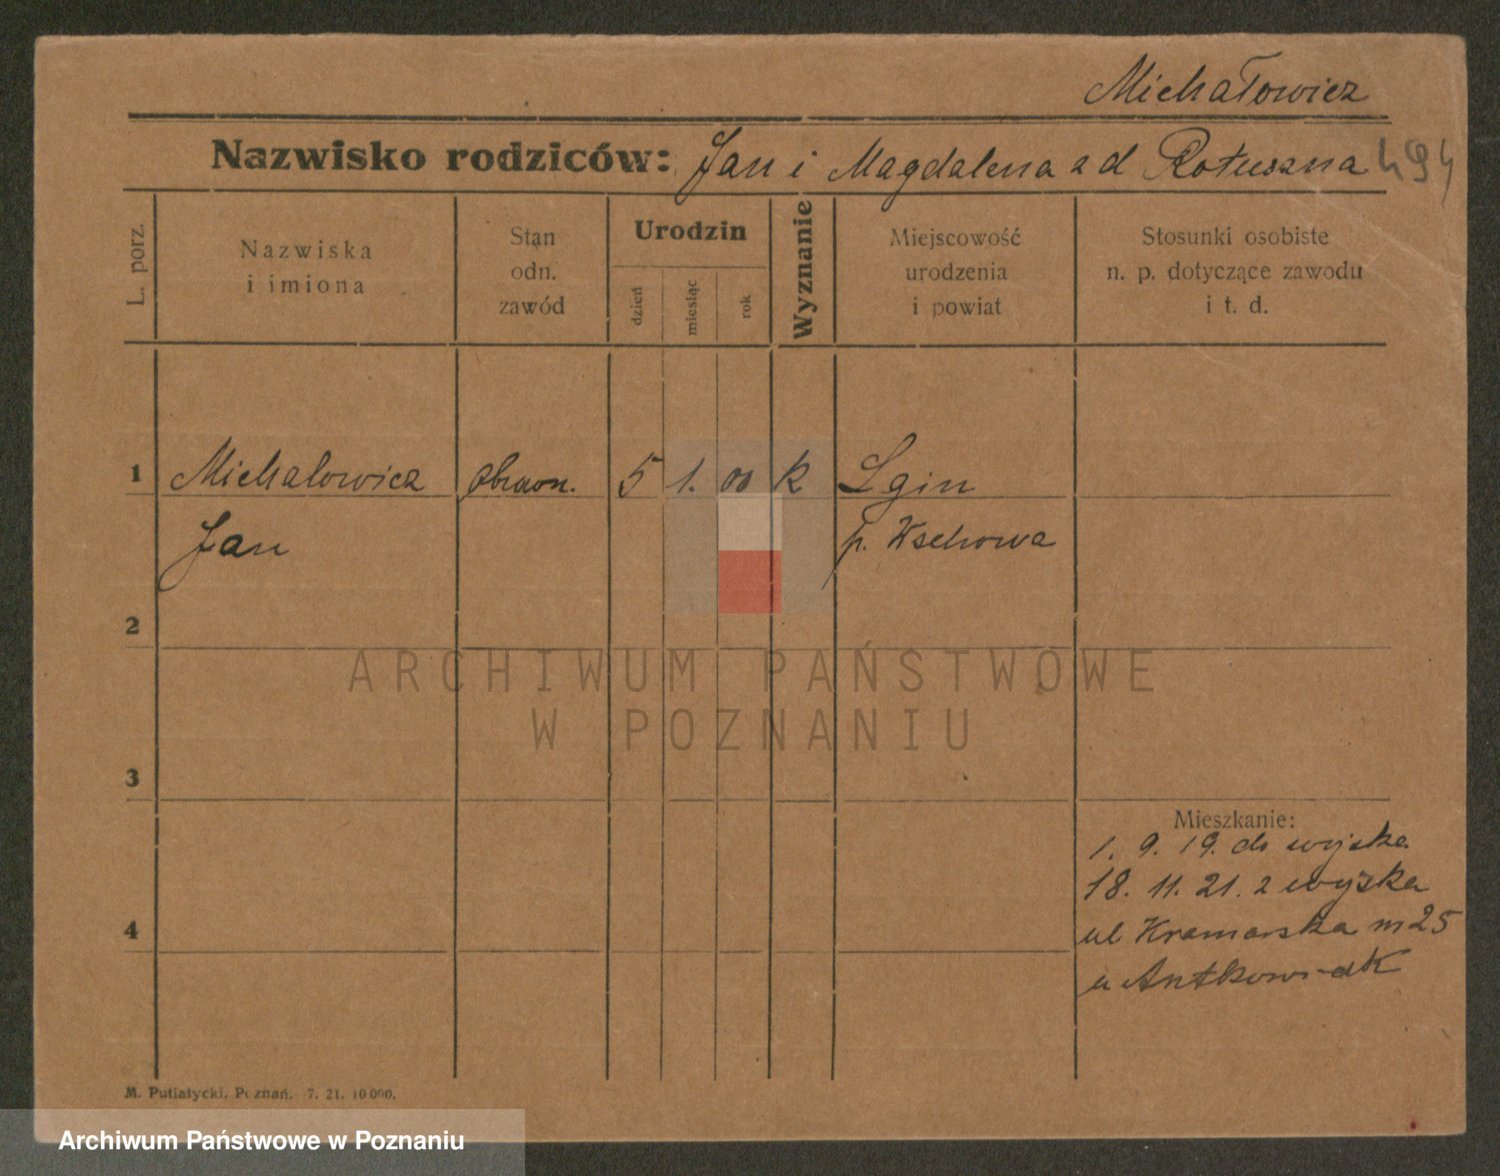 Michałowicz
Nazwisko rodziców: Jan i Magdalena z d Rotuszna 494
L. porz.
Nazwiska
i imiona
Stan
odn.
zawód
Urodzin
dzień
miesiąc
rok
Wyznanie
Miejscowość
urodzenia
i powiat
Stosunki osobiste
n. p. dotyczące zawodu
i t. d.
1 Michalowicz 5 1. 00 k Lgin
Jan p. Wschowa
2
ARCHIWUM PAŃSTWOWE
W POZNANIU
3
Mieszkanie:
1. 9. 19. do wojska
18. 11. 21. z wojska
4
ul Kramarska m 25
u Antkowiak
M. Putiatycki, Poznań. 7. 21. 10 000.
Archiwum Państwowe w Poznaniu